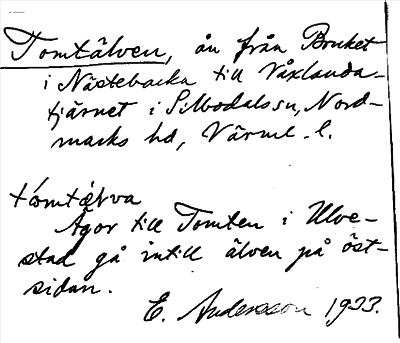 Tomtälven, ån från Bruket
i Nästebacka till Våxlanda-
tjärnet i Silbodals sn, Nord-
marks hd, Värml. l.
tómtä̀lva
Ägor till Tomten i Ulve-
stad gå intill älven på öst-
sidan.
E. Andersson 1933.